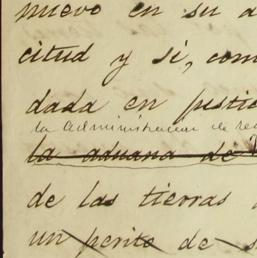 nuevo en su a
citud y si, com
dada en justic
la administracion de re
la aduana de V
de las tierras
un perito de s